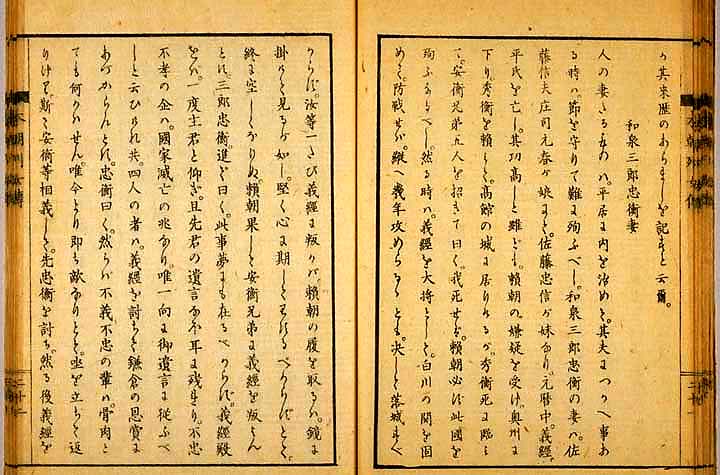 其來歴のあらましを記すと云爾。
和泉三郎忠衡妻
人の妻たるものハ。平居に内を治めて。其夫につかへ事あ
る時ハ節を守りて難に殉ふべし。和泉三郎忠衡の妻ハ。佐
藤信夫庄司元春が娘にて。佐藤忠信が妹なり。元暦中。義經
平氏を亡し。其功高しと雖ども。頼朝の嫌疑を受け。奥州に
下り。秀衡を頼とし。高館の城に居りけるが。秀衡死に臨ミ
て。安衡兄弟五人を招きて曰く。我死せバ。頼朝必ず此國を
然る時ハ。義經を大將として。白川の関を固
めて。防戦せバ。縦へ幾年攻めらるゝとも。决して落城すべ
からず。汝等一たび義經に叛かバ。頼朝の腹を取るハ。鏡に
掛けて見るが如し。堅く心に期してわするべからずとて。
終に空しくなりぬ。頼朝果して安衡兄弟に義經を叛かん
とす。三郎忠衡。進ミて曰く。此事夢にも在るべからず。義經殿
をバ。一度主君と仰ぎ。且先君の遺言なほ耳に残れり。不忠
不孝の企ハ。國家滅亡の兆なり。唯一向に御遺言に從ふべ
しと云ひけれ共。四人の者ハ。義經を討ちて。鎌倉の恩賞に
あづからんとす。忠衡曰く。然らバ不義不忠の輩ハ。骨肉と
ても何かハせん。唯今より即ち敵なりとて。座を立ちて返
りけり。斯くて安衡等相義して。先忠衡を討ち。然る後義經を
二十二